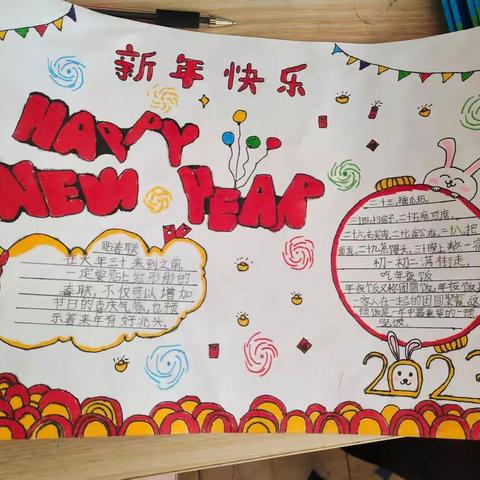 新年快乐
HAPPY
NEW YEAR
贴春联
在大年三十来到之前
一定要贴上红彤彤的
春联，不仅可以增加
节日的喜庆气氛，也预
示着来年有好兆头。
二十三，糖瓜粘，
二十四扫房子，二十五
二十六去买肉，二十七
面发，二十九蒸馒头。三十晚上熬一宿
初一初二满街走
吃年夜饭
年夜饭又称团圆饭，年夜饭是
一家人在一起的团圆聚餐，这
顿饭是一年中最重要的一顿
吃饭。
202